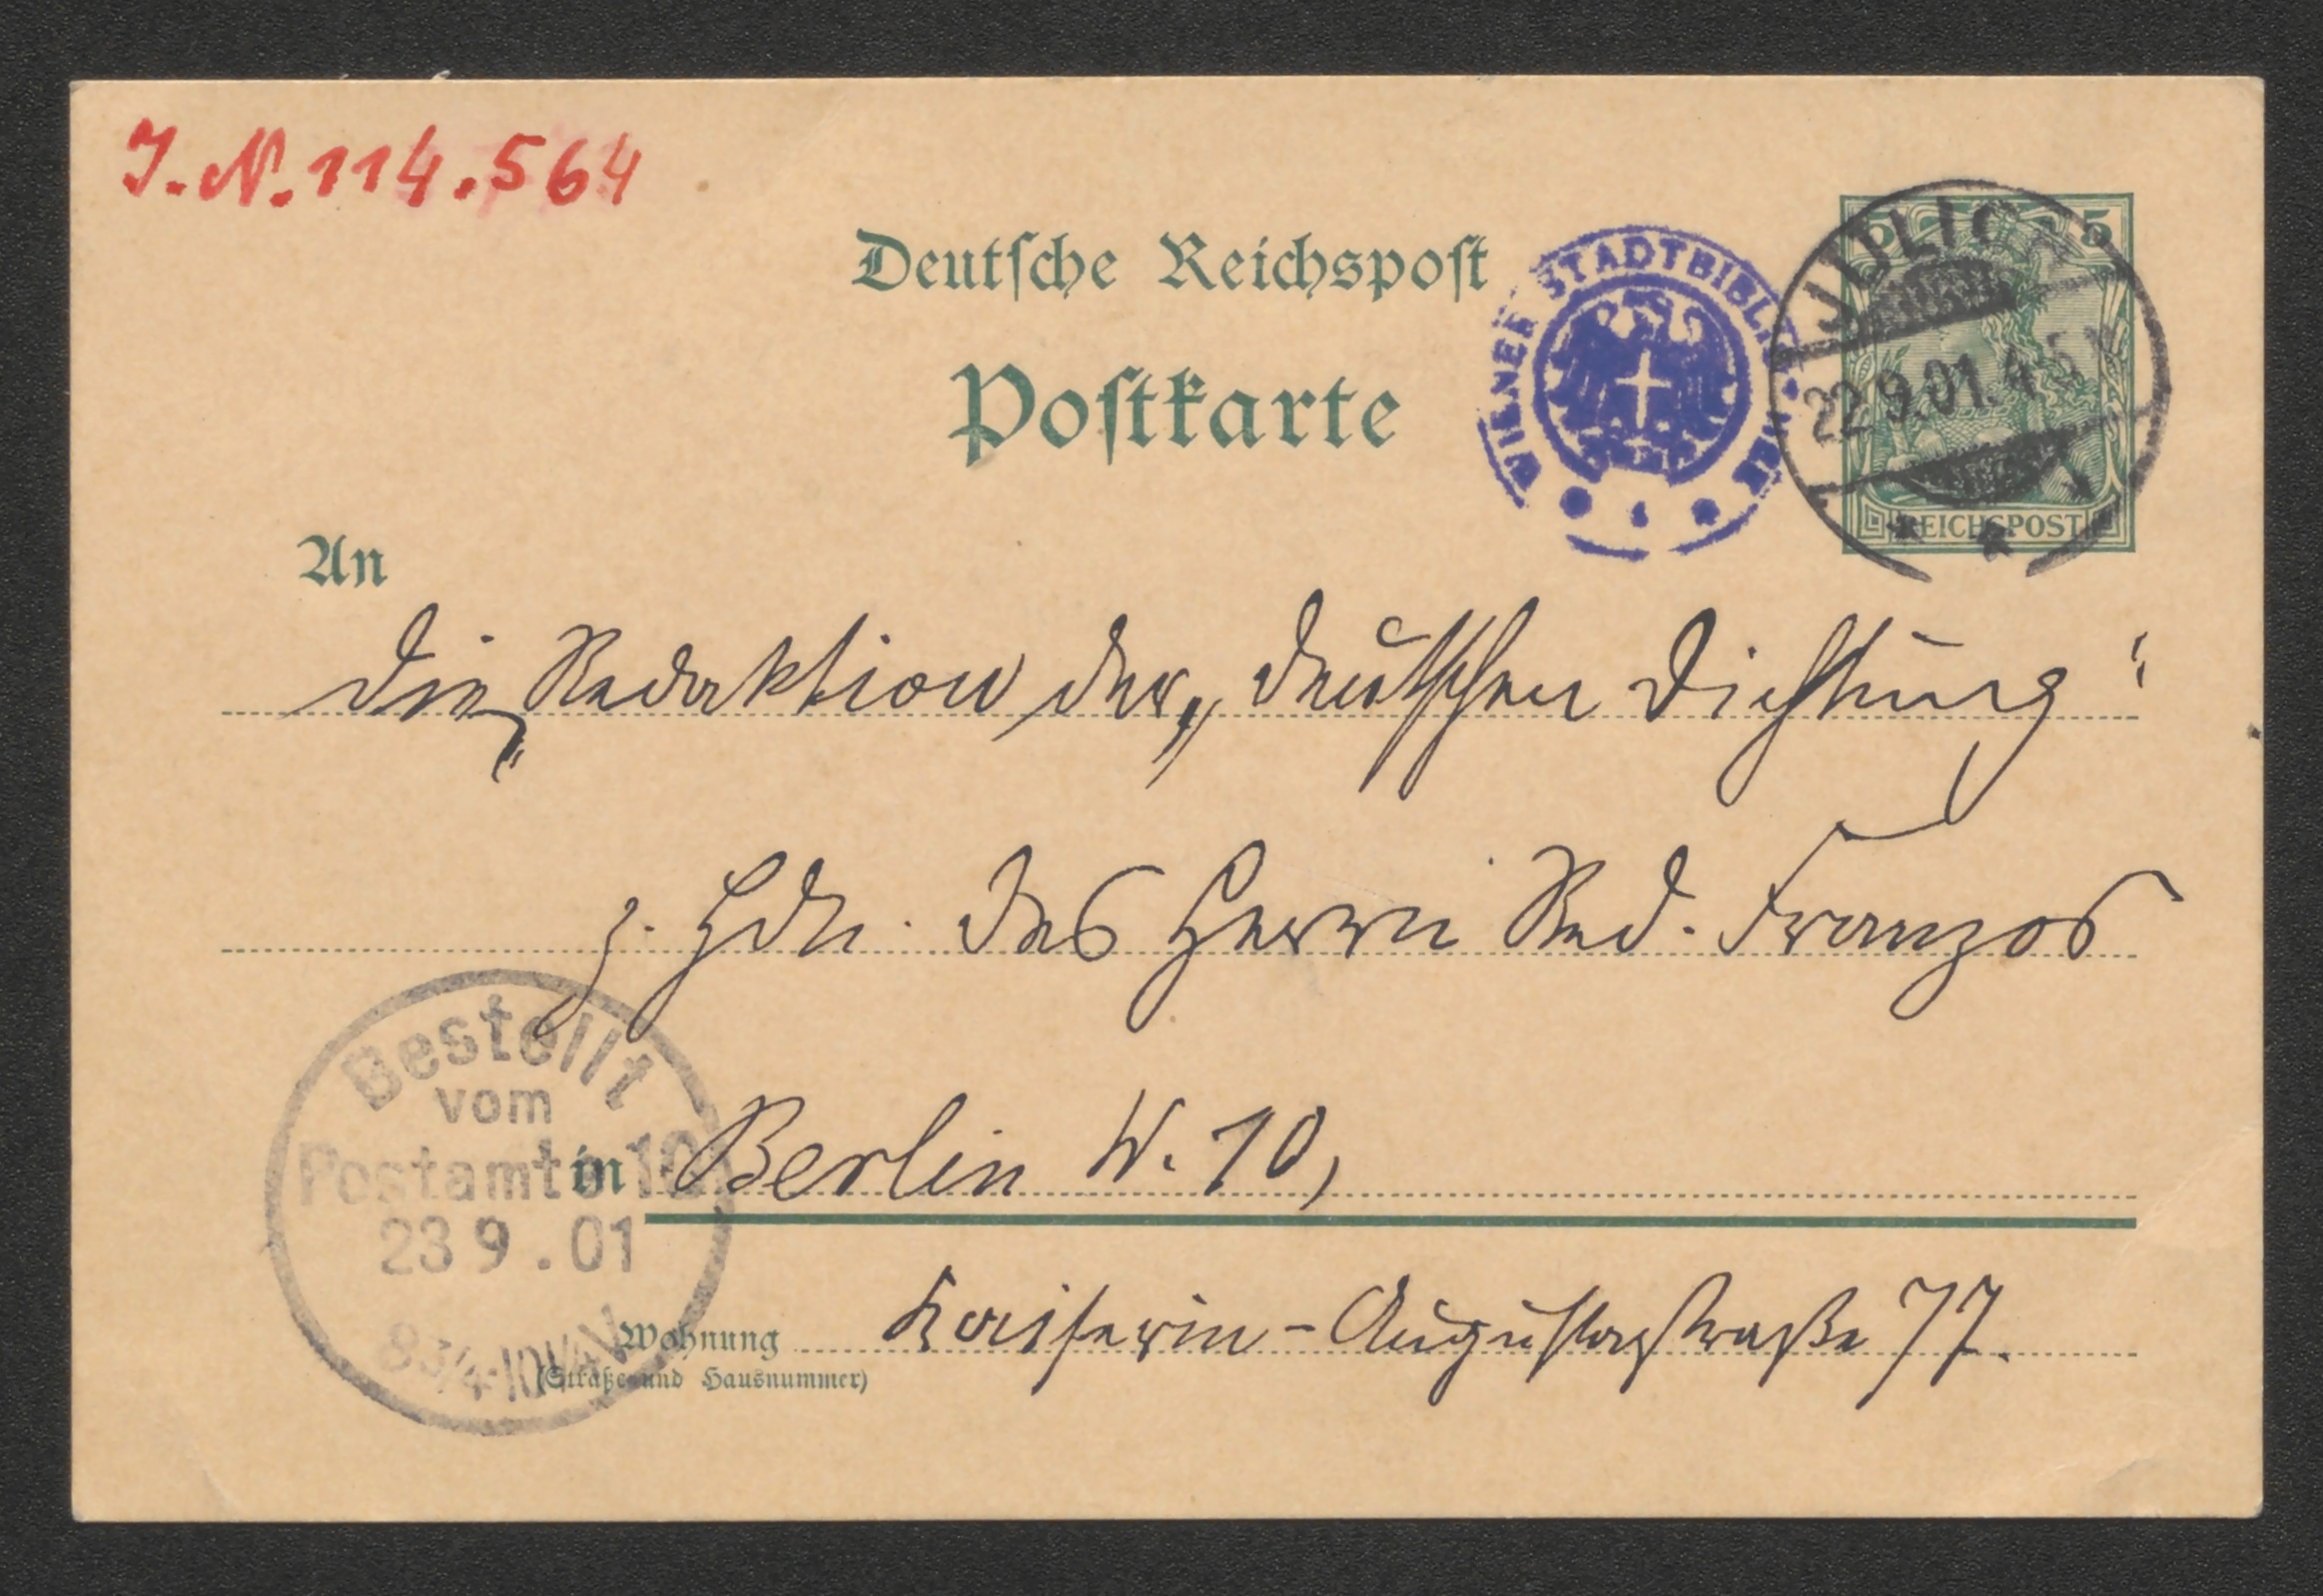 J. N. 114.564
Deutsche Reichspost
Postkarte
WIENER STADTBIBLIOTHEK
5 5
JÜLICH
22.9.01. 4-5 N
REICHSPOST
An
die Redaktion der „deutschen Dichtung“
z. Hdn. des Herrn Red. Franzos
in Berlin W. 10,
Wohnung Kaiserin-Augustastraße 77.
(Straße und Hausnummer)
Bestellt
vom
Postamte 10
23 9 . 01
8 3/4-10 1/4 V